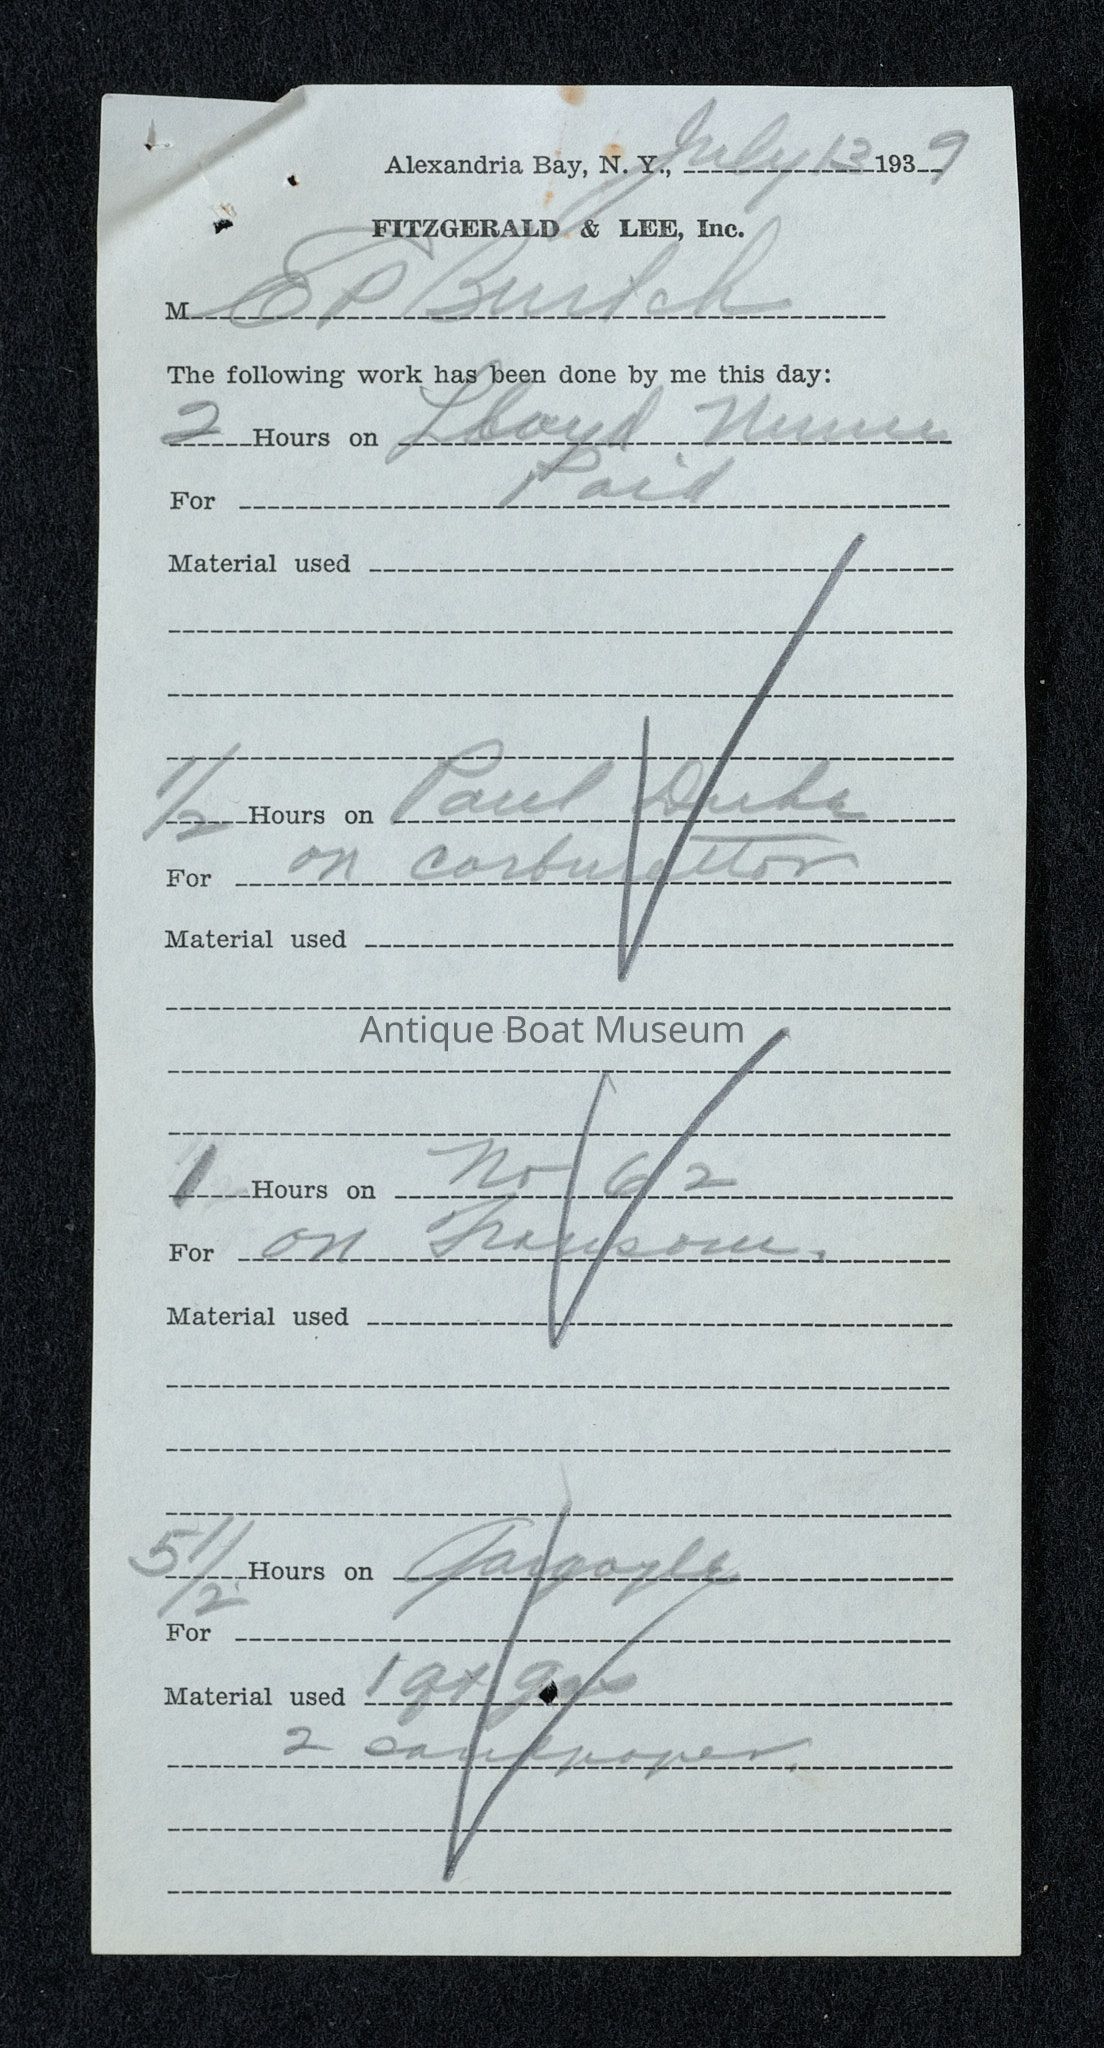 Alexandria Bay, N. Y., July 13 1939
FITZGERALD & LEE, Inc.
M E P Burtch
The following work has been done by me this day:
2 Hours on Lloyd
For Paid
Material used
1/2 Hours on Paul Duke
For on carburettor
Material used
Antique Boat Museum
1 Hours on No 62
For on Transom.
Material used
5 1/2 Hours on Gargoyle
For
Material used 1 qt gas
2 sandpaper.